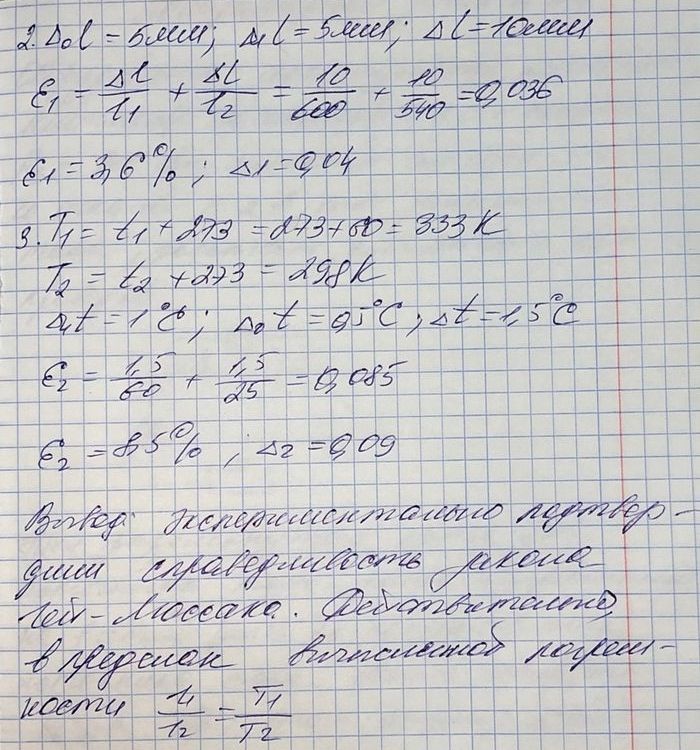 2. Δ₀l = 5мм; Δиl = 5мм; Δl = 10мм
ε₁ = Δl/l₁ + Δl/l₂ = 10/600 + 10/540 = 0,036
ε₁ = 3,6%; Δ₁ = 0,04
3. T₁ = t₁ + 273 = 273 + 60 = 333 K
T₂ = t₂ + 273 = 298 K
Δиt = 1°C; Δ₀t = 0,5°C; Δt = 1,5°C
ε₂ = 1,5/60 + 1,5/25 = 0,085
ε₂ = 8,5%; Δ₂ = 0,09
Вывод: экспериментально подтвер-
дили справедливость закона
Гей-Люссака. Действительно,
в пределах вычисленной погреш-
ности l₁/l₂ = T₁/T₂